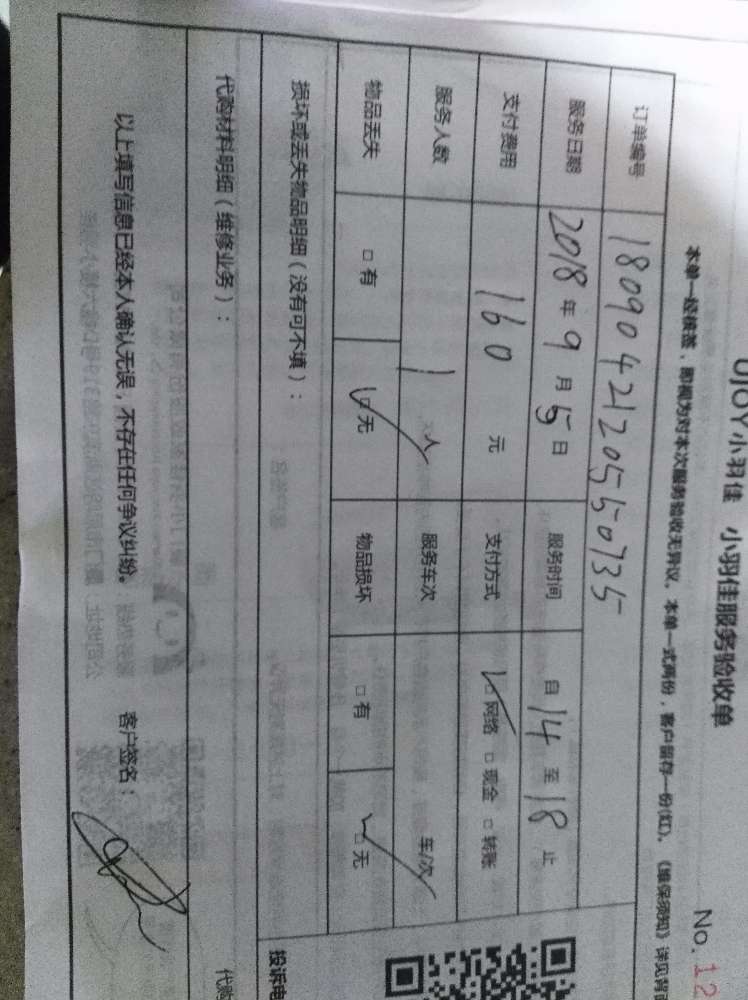 UJOY小羽佳 小羽佳服务验收单
No. 12
本单一经核签，即视为对本次服务验收无异议。本单一式两份，客户留存一份(红)。《维保须知》详见背
订单编号 18090421205550735
服务日期 2018年9月5日 服务时间 自14至18止
支付费用 160元 支付方式 □网络 □现金 □转账
服务人数 1人 服务车次 车/次
物品丢失 □有 □无 物品损坏 □有 □无
损坏或丢失物品明细（没有可不填）：
投诉电
代购材料明细（维修业务）：
代购
以上填写信息已经本人确认无误，不存在任何争议纠纷。 客户签名：